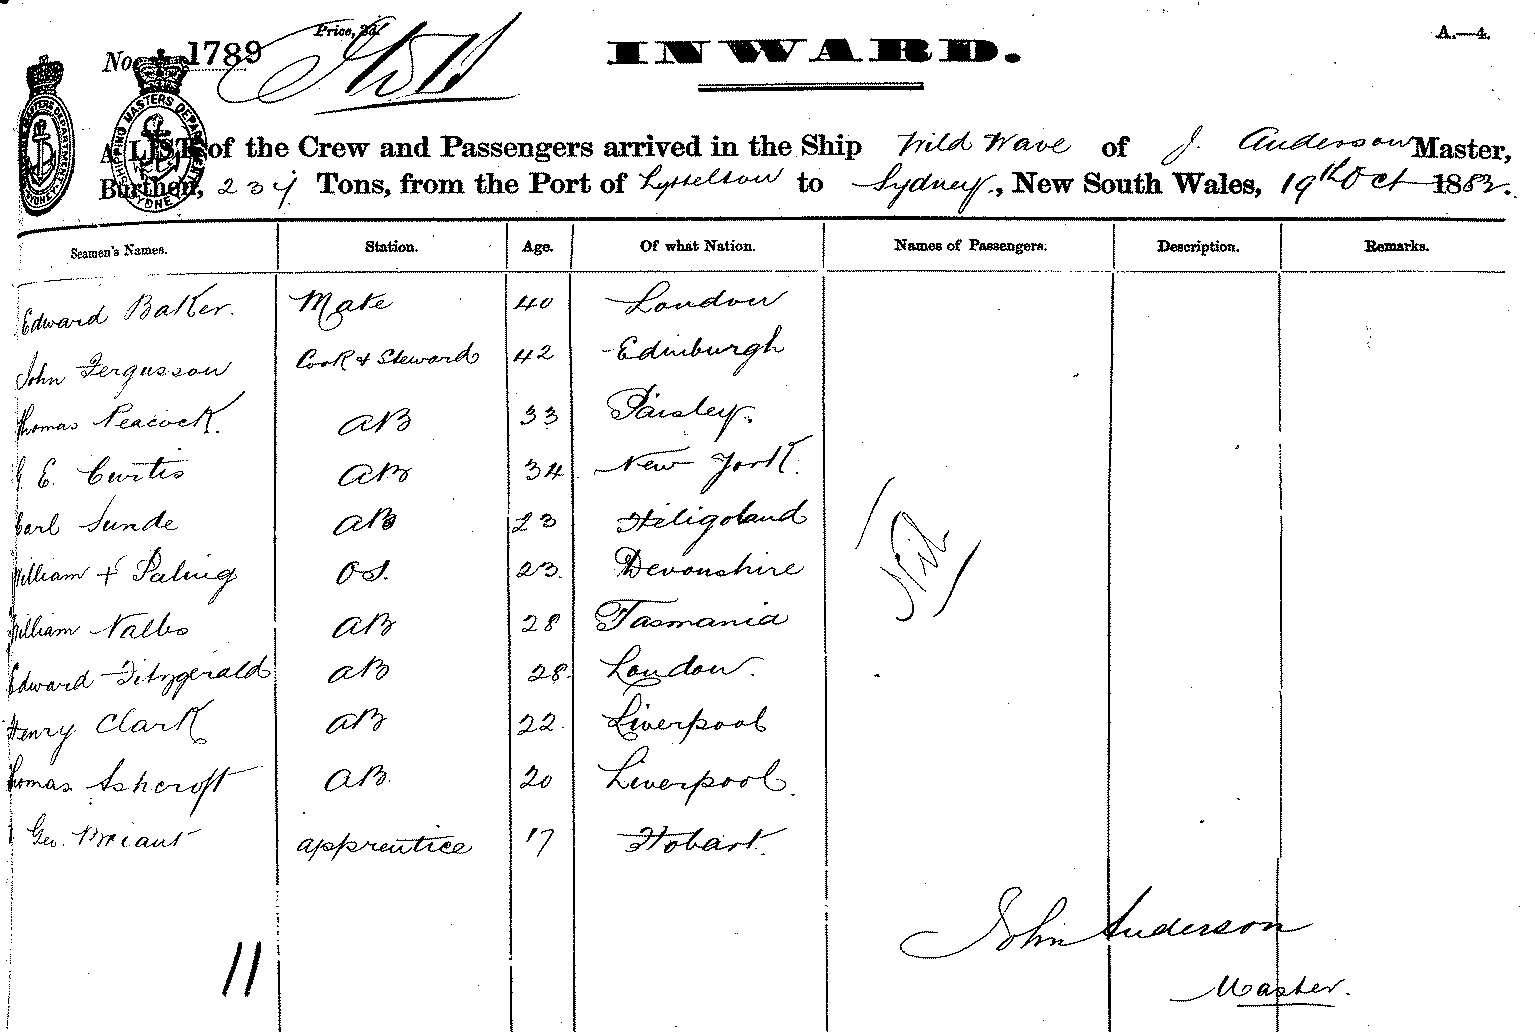 Price, 3d.
No. 1789
INWARD.
A.—4.
SHIPPING MASTERS DEPARTMENT SYDNEY
A LIST of the Crew and Passengers arrived in the Ship Wild Wave of J. Anderson Master,
Burthen, 234 Tons, from the Port of Lyttelton to Sydney, New South Wales, 19th Oct 1882.
Seamen's Names. Station. Age. Of what Nation. Names of Passengers. Description. Remarks.
Edward Baker. Mate 40 London
John Fergusson Cook & Steward 42 Edinburgh
Thomas Peacock. AB 33 Paisley.
E. Curtis AB 34 New York.
Carl Sunde AB 23 Heligoland
William + Paling OS. 23. Devonshire
William AB 28 Tasmania
Edward Fitzgerald AB 28 London.
Henry Clark AB 22 Liverpool
Thomas Ashcroft AB 20 Liverpool.
Geo. Briant apprentice 17 Hobart.
Nil
John Anderson
Master.
11